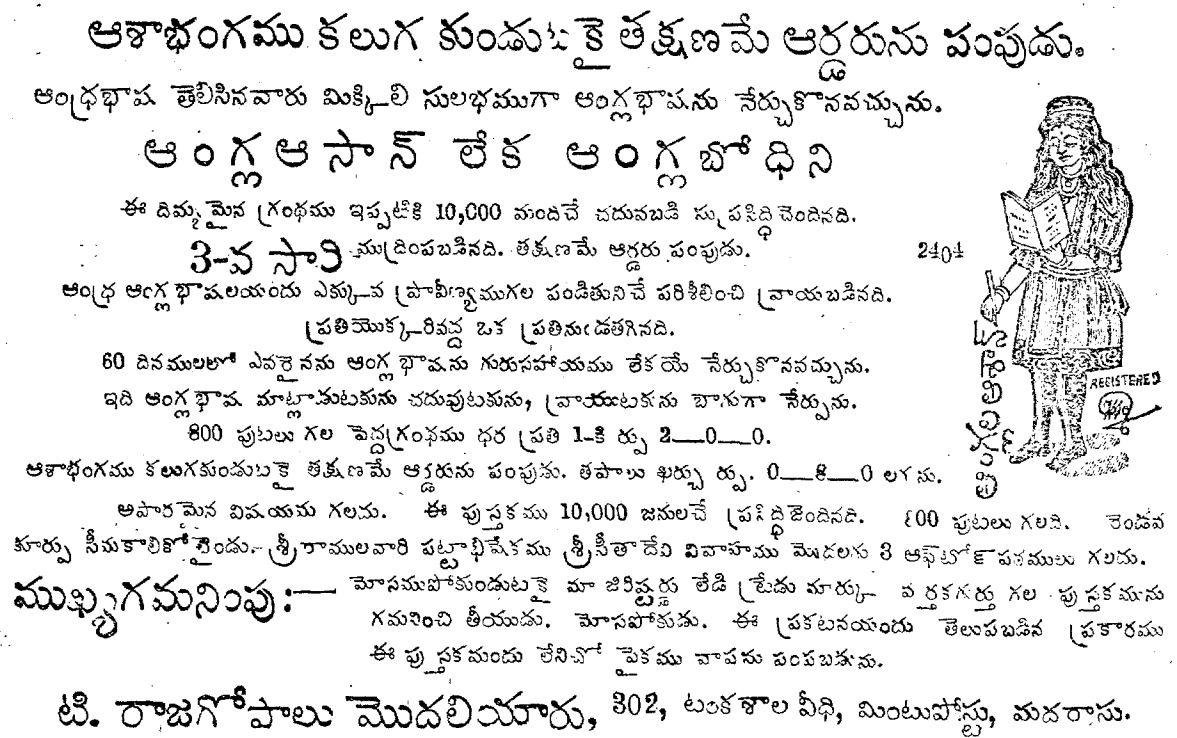 ఆశాభంగము కలుగ కుండుటకై తక్షణమే ఆర్డరును పంపుడు.
ఆంధ్రభాష తెలిసినవారు మిక్కిలి సులభముగా ఆంగ్లభాషను నేర్చుకొనవచ్చును.
ఆంగ్లఆసాన్ లేక ఆంగ్లబోధిని
ఈ దిమ్మమైన గ్రంథము ఇప్పటికి 10,000 మందిచే చదువబడి సుప్రసిద్ధిచెందినది.
3-వ సారి ముద్రింపబడినది. తక్షణమే ఆర్డరు పంపుడు.
2404
ఆంధ్ర ఆంగ్ల భాషలయందు ఎక్కువ ప్రావీణ్యముగల పండితునిచే పరిశీలించి వ్రాయబడినది.
ప్రతియొక్కరివద్ద ఒక ప్రతినుండతగినది.
60 దినములలో ఎవరైనను ఆంగ్ల భాషను గురుసహాయము లేకయే నేర్చుకొనవచ్చును.
ఇది ఆంగ్లభాష మాట్లాడుటకును చదువుటకును, వ్రాయుటకును బాగుగా నేర్పును.
800 పుటలు గల పెద్దగ్రంథము ధర ప్రతి 1-కి ర్పు 2—0—0.
ఆశాభంగము కలుగకుండుటకై తక్షణమే ఆర్డరును పంపుడు. తపాలు ఖర్చు ర్పు. 0—8—0 లగును.
అపారమైన విషయము గలదు. ఈ పుస్తకము 10,000 జనులచే ప్రసిద్ధిజెందినది. 800 పుటలు గలది. రెండవ
కూర్పు సీమకాలికో బైండు- శ్రీరాములవారి పట్టాభిషేకము శ్రీసీతాదేవి వివాహము మొదలగు 3 ఆఫ్‌టోన్ పటములు గలదు.
ముఖ్యగమనింపు:— మోసముపోకుండుటకై మా జిరిష్టర్డు లేడి ట్రేడు మార్కు వర్తకగుర్తు గల పుస్తకమును
గమనించి తీయుడు. మోసపోకుడు. ఈ ప్రకటనయందు తెలుపబడిన ప్రకారము
ఈ పుస్తకమందు లేనిచో పైకము వాపసు పంపబడును.
టి. రాజగోపాలు మొదలియారు, 302, టంకశాల వీధి, మింటుపోస్టు, మదరాసు.
REGISTERED